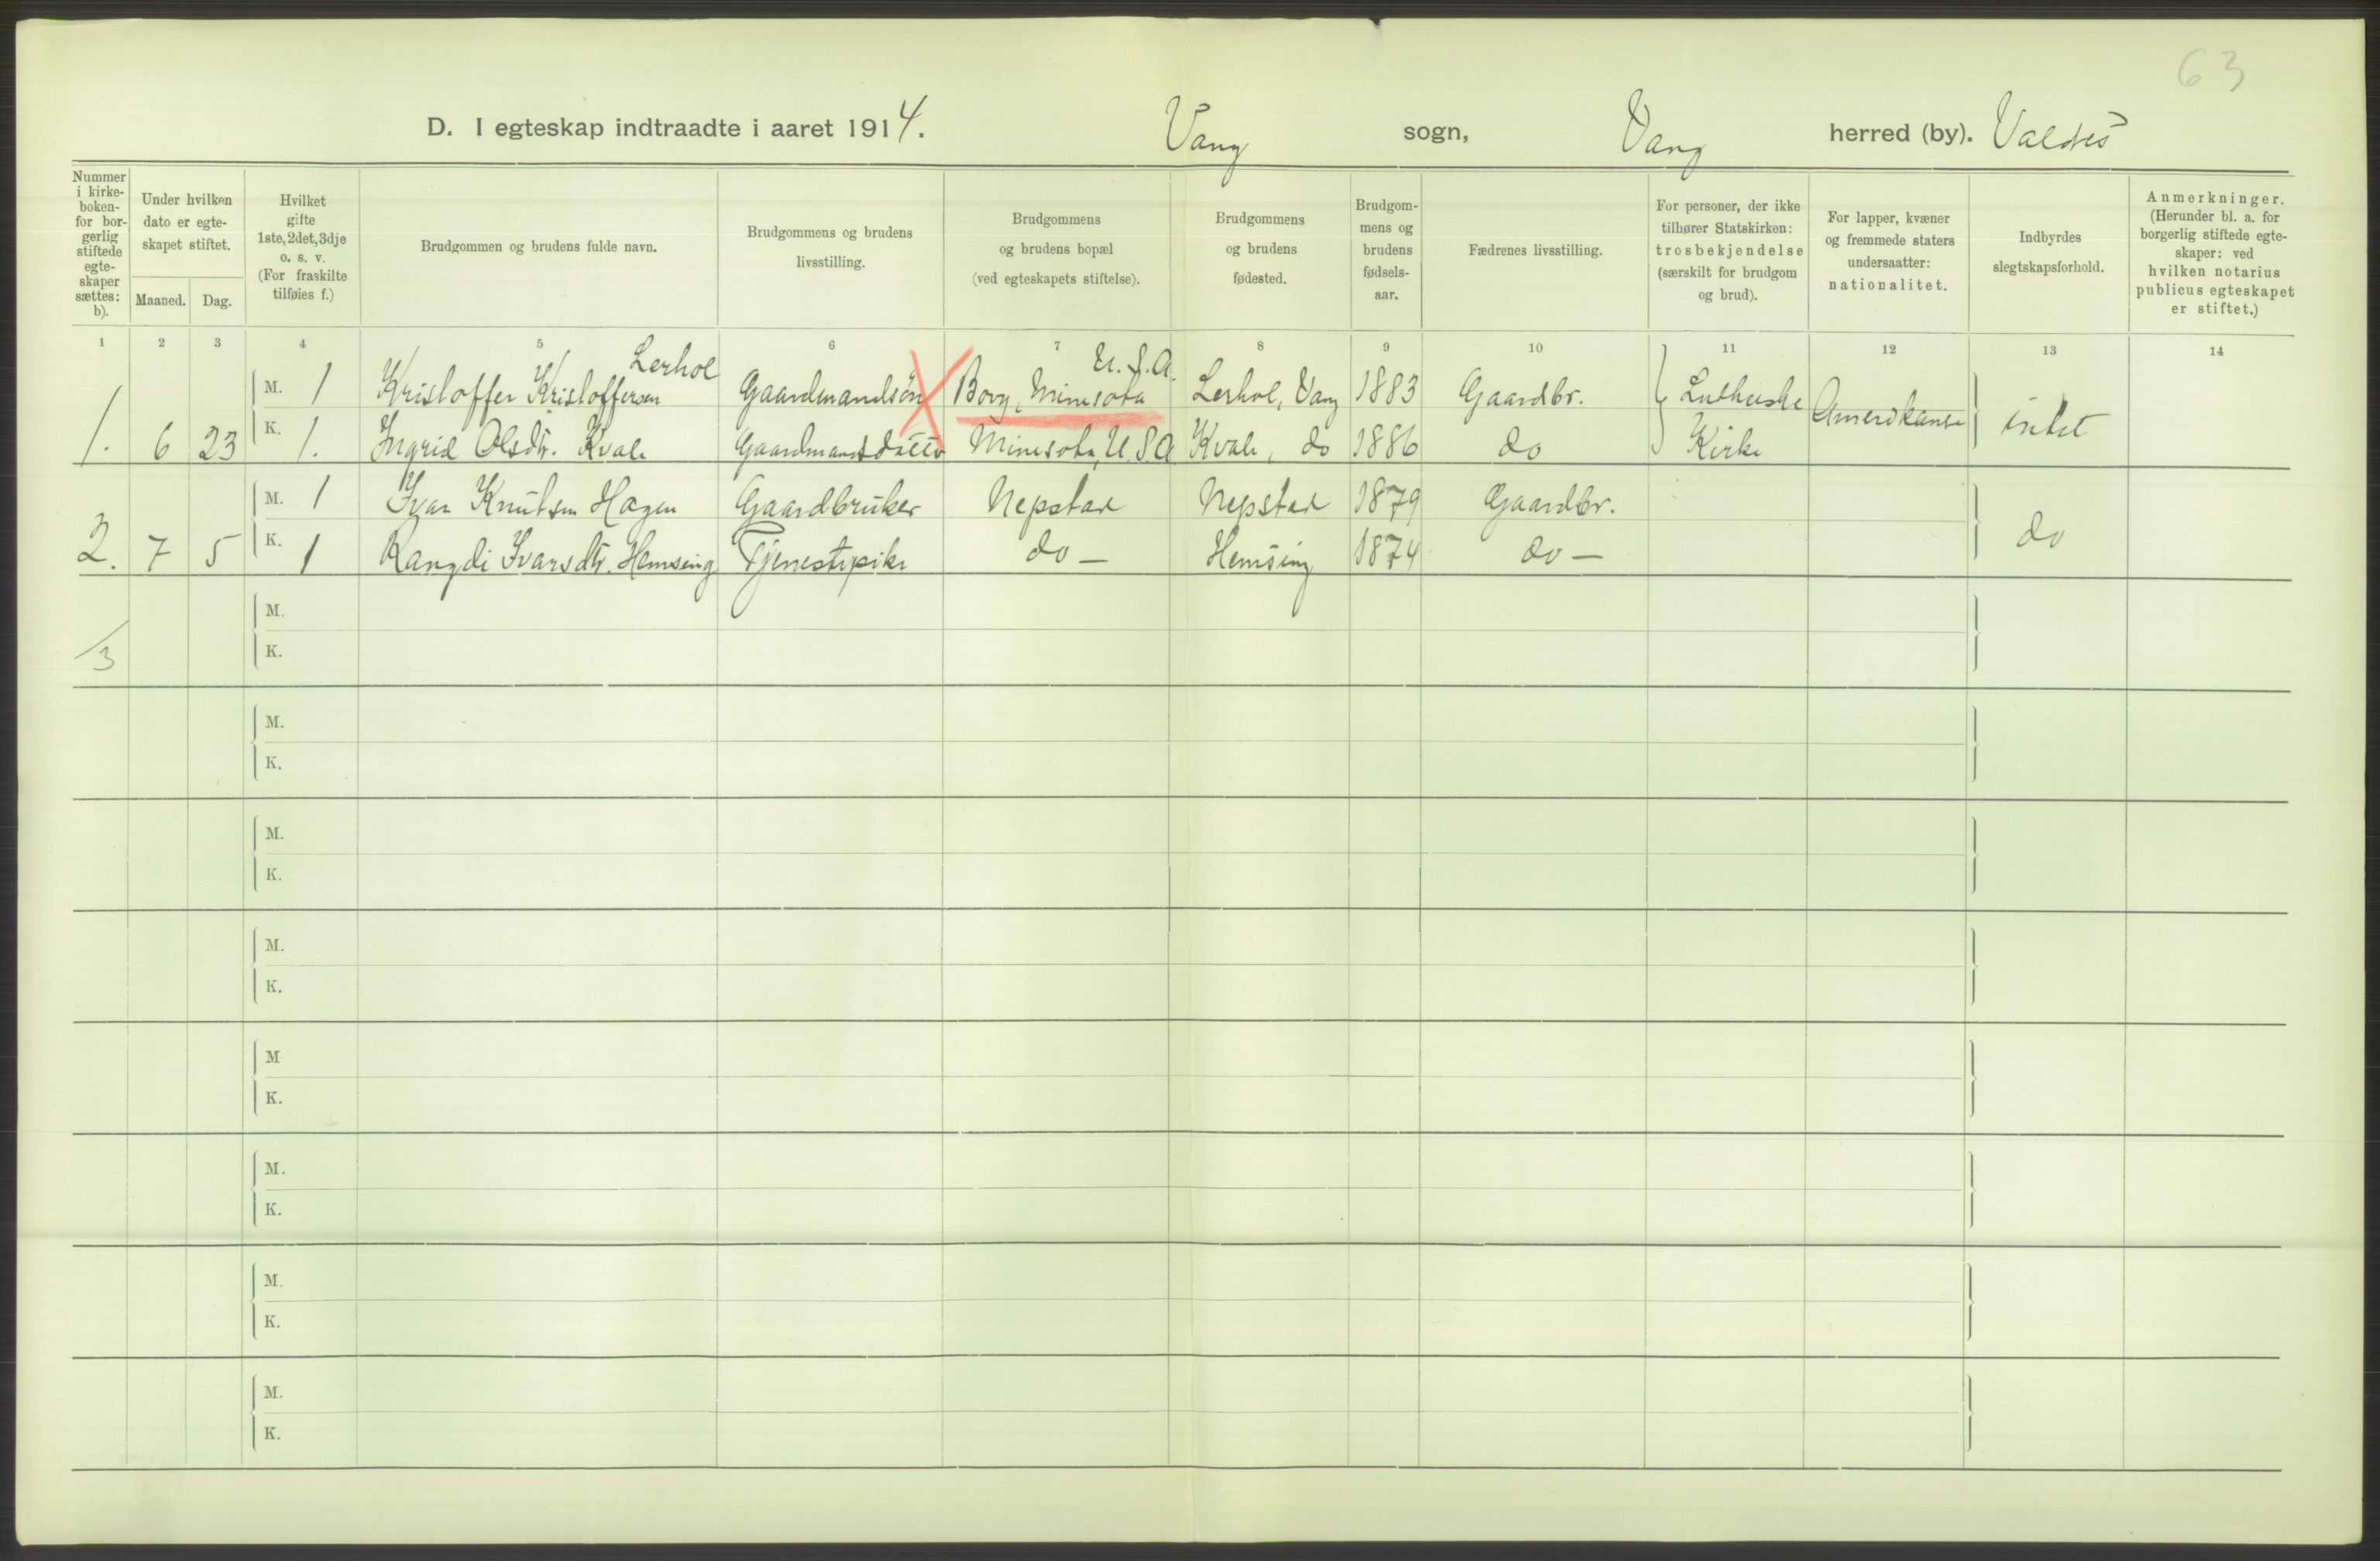 63
D. I egteskap indtraadte i aaret 1914. Vang sogn, Vang herred (by). Valdres
Nummer
i kirke-
boken-
for bor-
gerlig
stiftede
egte-
skaper
sættes:
b).
Under hvilken
dato er egte-
skapet stiftet.
Maaned. Dag.
Hvilket
gifte
1ste, 2det, 3dje
o. s. v.
(For fraskilte
tilføies f.)
Brudgommen og brudens fulde navn.
Brudgommens og brudens
livsstilling.
Brudgommens
og brudens bopæl
(ved egteskapets stiftelse).
Brudgommens
og brudens
fødested.
Brudgom-
mens og
brudens
fødsels-
aar.
Fædrenes livsstilling.
For personer, der ikke
tilhører Statskirken:
trosbekjendelse
(særskilt for brudgom
og brud).
For lapper, kvæner
og fremmede staters
undersaatter:
nationalitet.
Indbyrdes
slegtskapsforhold.
Anmerkninger.
(Herunder bl. a. for
borgerlig stiftede egte-
skaper: ved
hvilken notarius
publicus egteskapet
er stiftet.)
1 2 3 4 5 6 7 8 9 10 11 12 13 14
Lerhol U. S. A.
M. 1 Kristoffer Kristoffersen Gaardmandsøn Borg, Minesota Lerhol, Vang 1883 Gaardbr. Lutherske Amerikanse
1. 6 23 K. 1. Ingrid Olsdtr. Kvale Gaardmandsdatter Minesota, U.S.A Kvale, do 1886 do Kirke intet
M. 1 Ivar Knutsen Hagen Gaardbruker Nepstad Nepstad 1879 Gaardbr.
2. 7 5 K. 1 Rangdi Ivarsdtr. Hemsing Tjenestepike do — Hemsing 1874 do — do
M.
3 K.
M.
K.
M.
K.
M.
K.
M
K.
M.
K.
M.
K.
M.
K.